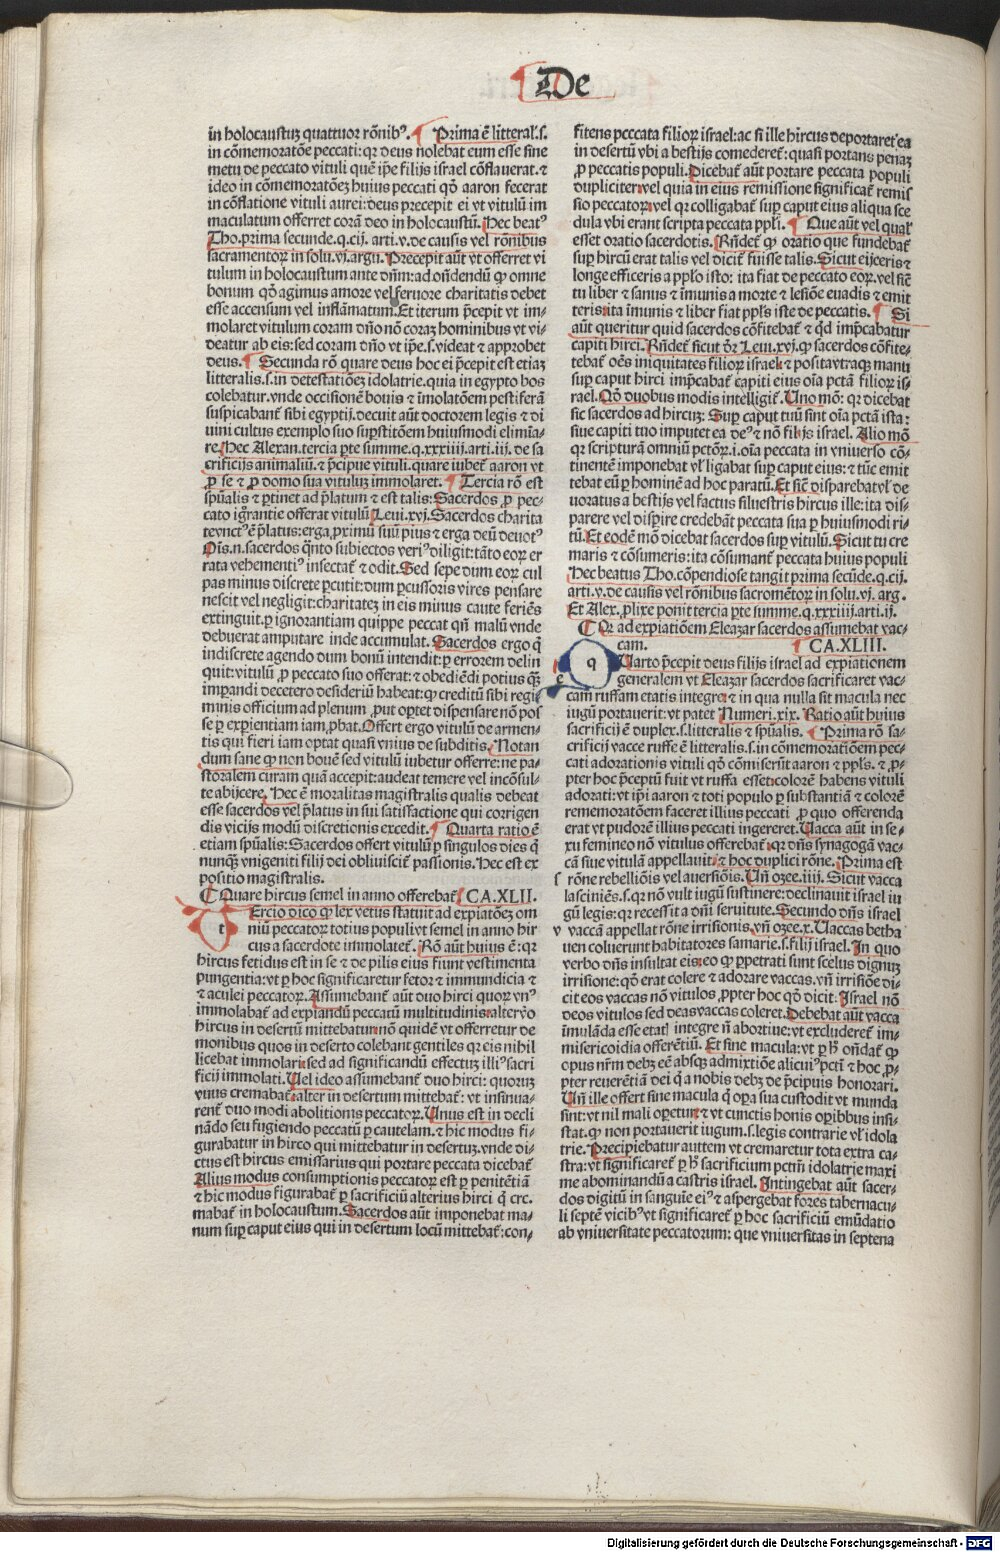 De
in holocaustuz quattuor rōnibꝰ. Prima ē litteral'.s.
in cōmemoratōe peccati: qꝛ deus nolebat eum esse sine
metu de peccato vituli quē ip̄e filijs israel cōflauerat. ⁊
ideo in cōmemoratōez huius peccati qḋ aaron fecerat
in cōflatione vituli aurei: deus precepit ei vt vitulū im
maculatum offerret corā deo in holocaustū. Hec beatꝰ
Tho. prima secunde. q. cij. arti. v. de causis vel rōnibus
sacramentoꝝ in solu. vj. argu. Precepit aūt vt offerret vi
tulum in holocaustum ante dn̄m: ad on̄dendū ꝙ omne
bonum qḋ agimus amore vel feruore charitatis debet
esse accensum vel inflāmatum. Et iterum p̄cepit vt im-
molaret vitulum coram dn̄o nō coraz hominibus vt vi-
deatur ab eis: sed coram dn̄o vt ip̄e .s. videat ⁊ approbet
deus. Secunda rō quare deus hoc ei p̄cepit est etiaz
litteralis .s. in detestatiōez idolatrie. quia in egypto bos
colebatur. vnde occisionē bouis ⁊ īmolatōem pestiferā
suspicabant̄ sibi egyptij. decuit aūt doctorem legis ⁊ di
uini cultus exemplo suo suꝑstitōem huiusmodi elimīa-
re. Hec Alexan. tercia ꝑte summe. q. xxxiiij. arti. iij. de sa
crificijs animaliū. ⁊ p̄cipue vituli. quare iubet̄ aaron vt
ꝓ se ⁊ ꝓ domo sua vituluz immolaret. Tercia rō est
spūalis ⁊ ꝑtinet ad p̄latum ⁊ est talis: Sacerdos ꝓ pec-
cato igrantie offerat vitulū Leui. xvj. Sacerdos charita
te vnctꝰ ē p̄latus: erga ꝓximū suū pius ⁊ erga deū deuotꝰ
Ois .n. sacerdos q̄nto subiectos veriꝰ diligit: tāto eoꝝ er
rata vehementiꝰ insectat̄ ⁊ odit. Sed sepe dum eoꝝ cul
pas minus discrete ꝑcutit: dum ꝑcussoris vires pensare
nescit vel negligit: charitatez in eis minus caute feriēs
extinguit. ꝑ ignorantiam quippe peccat qn̄ malū vnde
debuerat amputare inde accumulat. Sacerdos ergo q̄
indiscrete agendo dum bonū intendit: ꝑ errorem delin
quit: vitulū ꝓ peccato suo offerat: ⁊ obediēdi potius qꝫ
imꝑandi decetero desideriū habeat: ꝙ creditū sibi regi
minis officium ad plenum ꝓut oꝑtet dispensare nō pos
se ꝑ exꝑientiam iam ꝓbat. Offert ergo vitulū de armen-
tis qui fieri iam optat quasi vnius de subditis. Notan
dum sane ꝙ non bouē sed vitulū iubetur offerre: ne pa-
storalem curam quā accepit: audeat temere vel incōsul-
te abijcere. Hec ē moralitas magistralis qualis debeat
esse sacerdos vel p̄latus in sui satisfactione qui corrigen
dis vicijs modū discretionis excedit. Quarta ratio ē
etiam spūalis: Sacerdos offert vitulū ꝑ singulos dies q̄
nunqꝫ vnigeniti filij dei obliuiscit̄ passionis. Hec est ex
positio magistralis.
Quare hircus semel in anno offerebat̄ CA.XLII.
t
Ercio dico ꝙ lex vetus statuit ad expiatōez om
niū peccatoꝝ totius populi vt semel in anno hir
cus a sacerdote immolaret̄. Rō aūt huius ē: qꝛ
hircus fetidus est in se ⁊ de pilis eius fiunt vestimenta
pungentia: vt ꝑ hoc significaretur fetor ⁊ immundicia ⁊
⁊ aculei peccatoꝝ. Assumebant̄ aūt duo hirci quoꝝ vnꝰ
immolabat̄ ad expiandū peccatū multitudinis: alter vō
hircus in desertū mittebatur: nō quidē vt offerretur de
monibus quos in deserto colebant gentiles qꝛ eis nihil
licebat immolari: sed ad significandū effectuz illiꝰ sacri
ficij immolati. Uel ideo assumebant̄ duo hirci: quoruz
vnus cremabat̄: alter in desertum mittebat̄: vt insinua-
rent̄ duo modi abolitionis peccatoꝝ. Unus est in decli
nādo seu fugiendo peccatū ꝑ cautelam. ⁊ hic modus fi-
gurabatur in hirco qui mittebatur in desertuz. vnde di-
ctus est hircus emissarius qui portare peccata dicebat̄
Alius modus consumptionis peccatoꝝ est ꝑ penitētiā
⁊ hic modus figurabat̄ ꝑ sacrificiū alterius hirci q̄ cre-
mabat̄ in holocaustum. Sacerdos aūt imponebat ma-
num suꝑ caput eius qui in desertum locū mittebat̄: con-
fitens peccata filioꝝ israel: ac si ille hircus deportaret ea
in desertū vbi a bestijs comederet̄: quasi portans penaz
ꝓ peccatis populi. Dicebat̄ aūt portare peccata populi
dupliciter: vel quia in eius remissione significat̄ remis
sio peccatoꝝ: vel qꝛ colligabat̄ suꝑ caput eius aliqua sce
dula vbi erant scripta peccata ppl'i. Que aūt vel qual'
esset oratio sacerdotis. Rn̄det̄ ꝙ oratio que fundebat̄
suꝑ hircū erat talis vel dicit̄ fuisse talis. Sicut eijceris ⁊
longe efficeris a ppl'o isto: ita fiat de peccato eoꝝ. vel sic̄
tu liber ⁊ sanus ⁊ īmunis a morte ⁊ lesiōe euadis ⁊ emit
teris: ita īmunis ⁊ liber fiat ppl's iste de peccatis. Si
aūt queritur quid sacerdos cōfitebat̄ ⁊ qd imp̄cabatur
capiti hirci. Rn̄det̄ sicut dꝛ Leui. xvj. ꝙ sacerdos cōfite-
tebat̄ oēs iniquitates filioꝝ israel: ⁊ posita vtraqꝫ manu
suꝑ caput hirci imp̄cabat̄ capiti eius oīa pctā filioꝝ is-
rael. Qḋ duobus modis intelligit̄. Uno mō: qꝛ dicebat
sic sacerdos ad hircuz: Suꝑ caput tuū sint oīa pctā ista:
siue capiti tuo imputet ea deꝰ ⁊ nō filijs israel. Alio mō
qꝛ scripturā omniū pctōꝝ .i. oīa peccata in vniuerso cō-
tinentē imponebat vl' ligabat suꝑ caput eius: ⁊ tūc emit
tebat eū ꝑ hominē ad hoc paratū. Et sic̄ disparebat vl' de
uoratus a bestijs vel factus siluestris hircus ille: ita dis-
parere vel disꝑire credebāt peccata sua ꝑ huiusmodi ri-
tū. Et eodē mō dicebat sacerdos suꝑ vitulū. Sicut tu cre
maris ⁊ cōsumeris: ita cōsumant̄ peccata huius populi
Hec beatus Tho. cōpendiose tangit prima secūde. q. cij.
arti. v. de causis vel rōnibus sacromētoꝝ in solu. vj. arg.
Et Alex. ꝓlixe ponit tercia ꝑte summe. q. xxxiiij. arti. ij.
Qꝛ ad expiatiōem Eleazar sacerdos assumebat vac-
cam. CA.XLIII.
q
Uarto p̄cepit deus filijs israel ad expiationem
generalem vt Eleazar sacerdos sacrificaret vac-
cam ruffam etatis integre: ⁊ in qua nulla sit macula nec
iugū portauerit: vt patet Numeri. xix. Ratio aūt huius
sacrificij ē duplex .s. litteralis ⁊ spūalis. Prima rō sa-
crificij vacce ruffe ē litteralis .s. in cōmemoratiōem pec-
cati adorationis vituli qḋ cōmiserūt aaron ⁊ ppl's. ⁊ ꝓ-
pter hoc p̄ceptū fuit vt ruffa esset: colorē habens vituli
adorati: vt ip̄i aaron ⁊ toti populo ꝑ substantiā ⁊ colorē
rememoratōem faceret illius peccati ꝓ quo offerenda
erat vt pudorē illius peccati ingereret. Uacca aūt in se-
xu femineo nō vitulus offerebat̄: qꝛ dn̄s synagogā vac-
cā siue vitulā appellauit: ⁊ hoc duplici rōne. Prima est
rōne rebelliōis vel auersiōis. Un̄ ozee. iiij. Sicut vacca
lasciuiēs .s. qꝛ nō vult iugū sustinere: declinauit israel iu
gū legis: qꝛ recessit a dn̄i seruitute. Secundo dn̄s israel
vaccā appellat rōne irrisionis. vn̄ ozee. x. Uaccas betha
uen coluerunt habitatores samarie .s. filij israel. In quo
verbo dn̄s insultat eis: eo ꝙ ꝑpetrati sunt scelus dignuz
irrisione: qḋ erat colere ⁊ adorare vaccas. vn̄ irrisiōe di-
cit eos vaccas nō vitulos ꝓpter hoc qḋ dicit: Israel nō
deos vitulos sed deas vaccas coleret. Debebat aūt vacca
īmulāda esse etat̄ integre n̄ abortiue: vt excluderet̄ im-
misericoidia offerētiū. Et sine macula: vt ꝑ h̄ ondat̄ ꝙ
opus nr̄m debꝫ eē absqꝫ admixtiōe alicuiꝰ pcti ⁊ hoc ꝓ-
pter reuerētiā dei q̄ a nobis debꝫ de p̄cipuis honorari.
Un̄ ille offert sine macula q̄ oꝑa sua custodit vt munda
sint: vt nil mali oꝑetur: ⁊ vt cunctis honis oꝑibus insi-
stat. ꝙ non portauerit iugum .s. legis contrarie vl' idola
trie. Precipiebatur auttem vt cremaretur tota extra ca-
stra: vt significaret̄ ꝑ h̄ sacrificium pctm̄ idolatrie maxi
me abominandū a castris israel. Intingebat aūt sacer-
dos digitū in sanguīe eiꝰ ⁊ aspergebat fores tabernacu-
li septē vicibꝰ vt significaret̄ ꝑ hoc sacrificiū emūdatio
ab vniuersitate peccatorum: que vniuersitas in septena
Digitalisierung gefördert durch die Deutsche Forschungsgemeinschaft - DFG